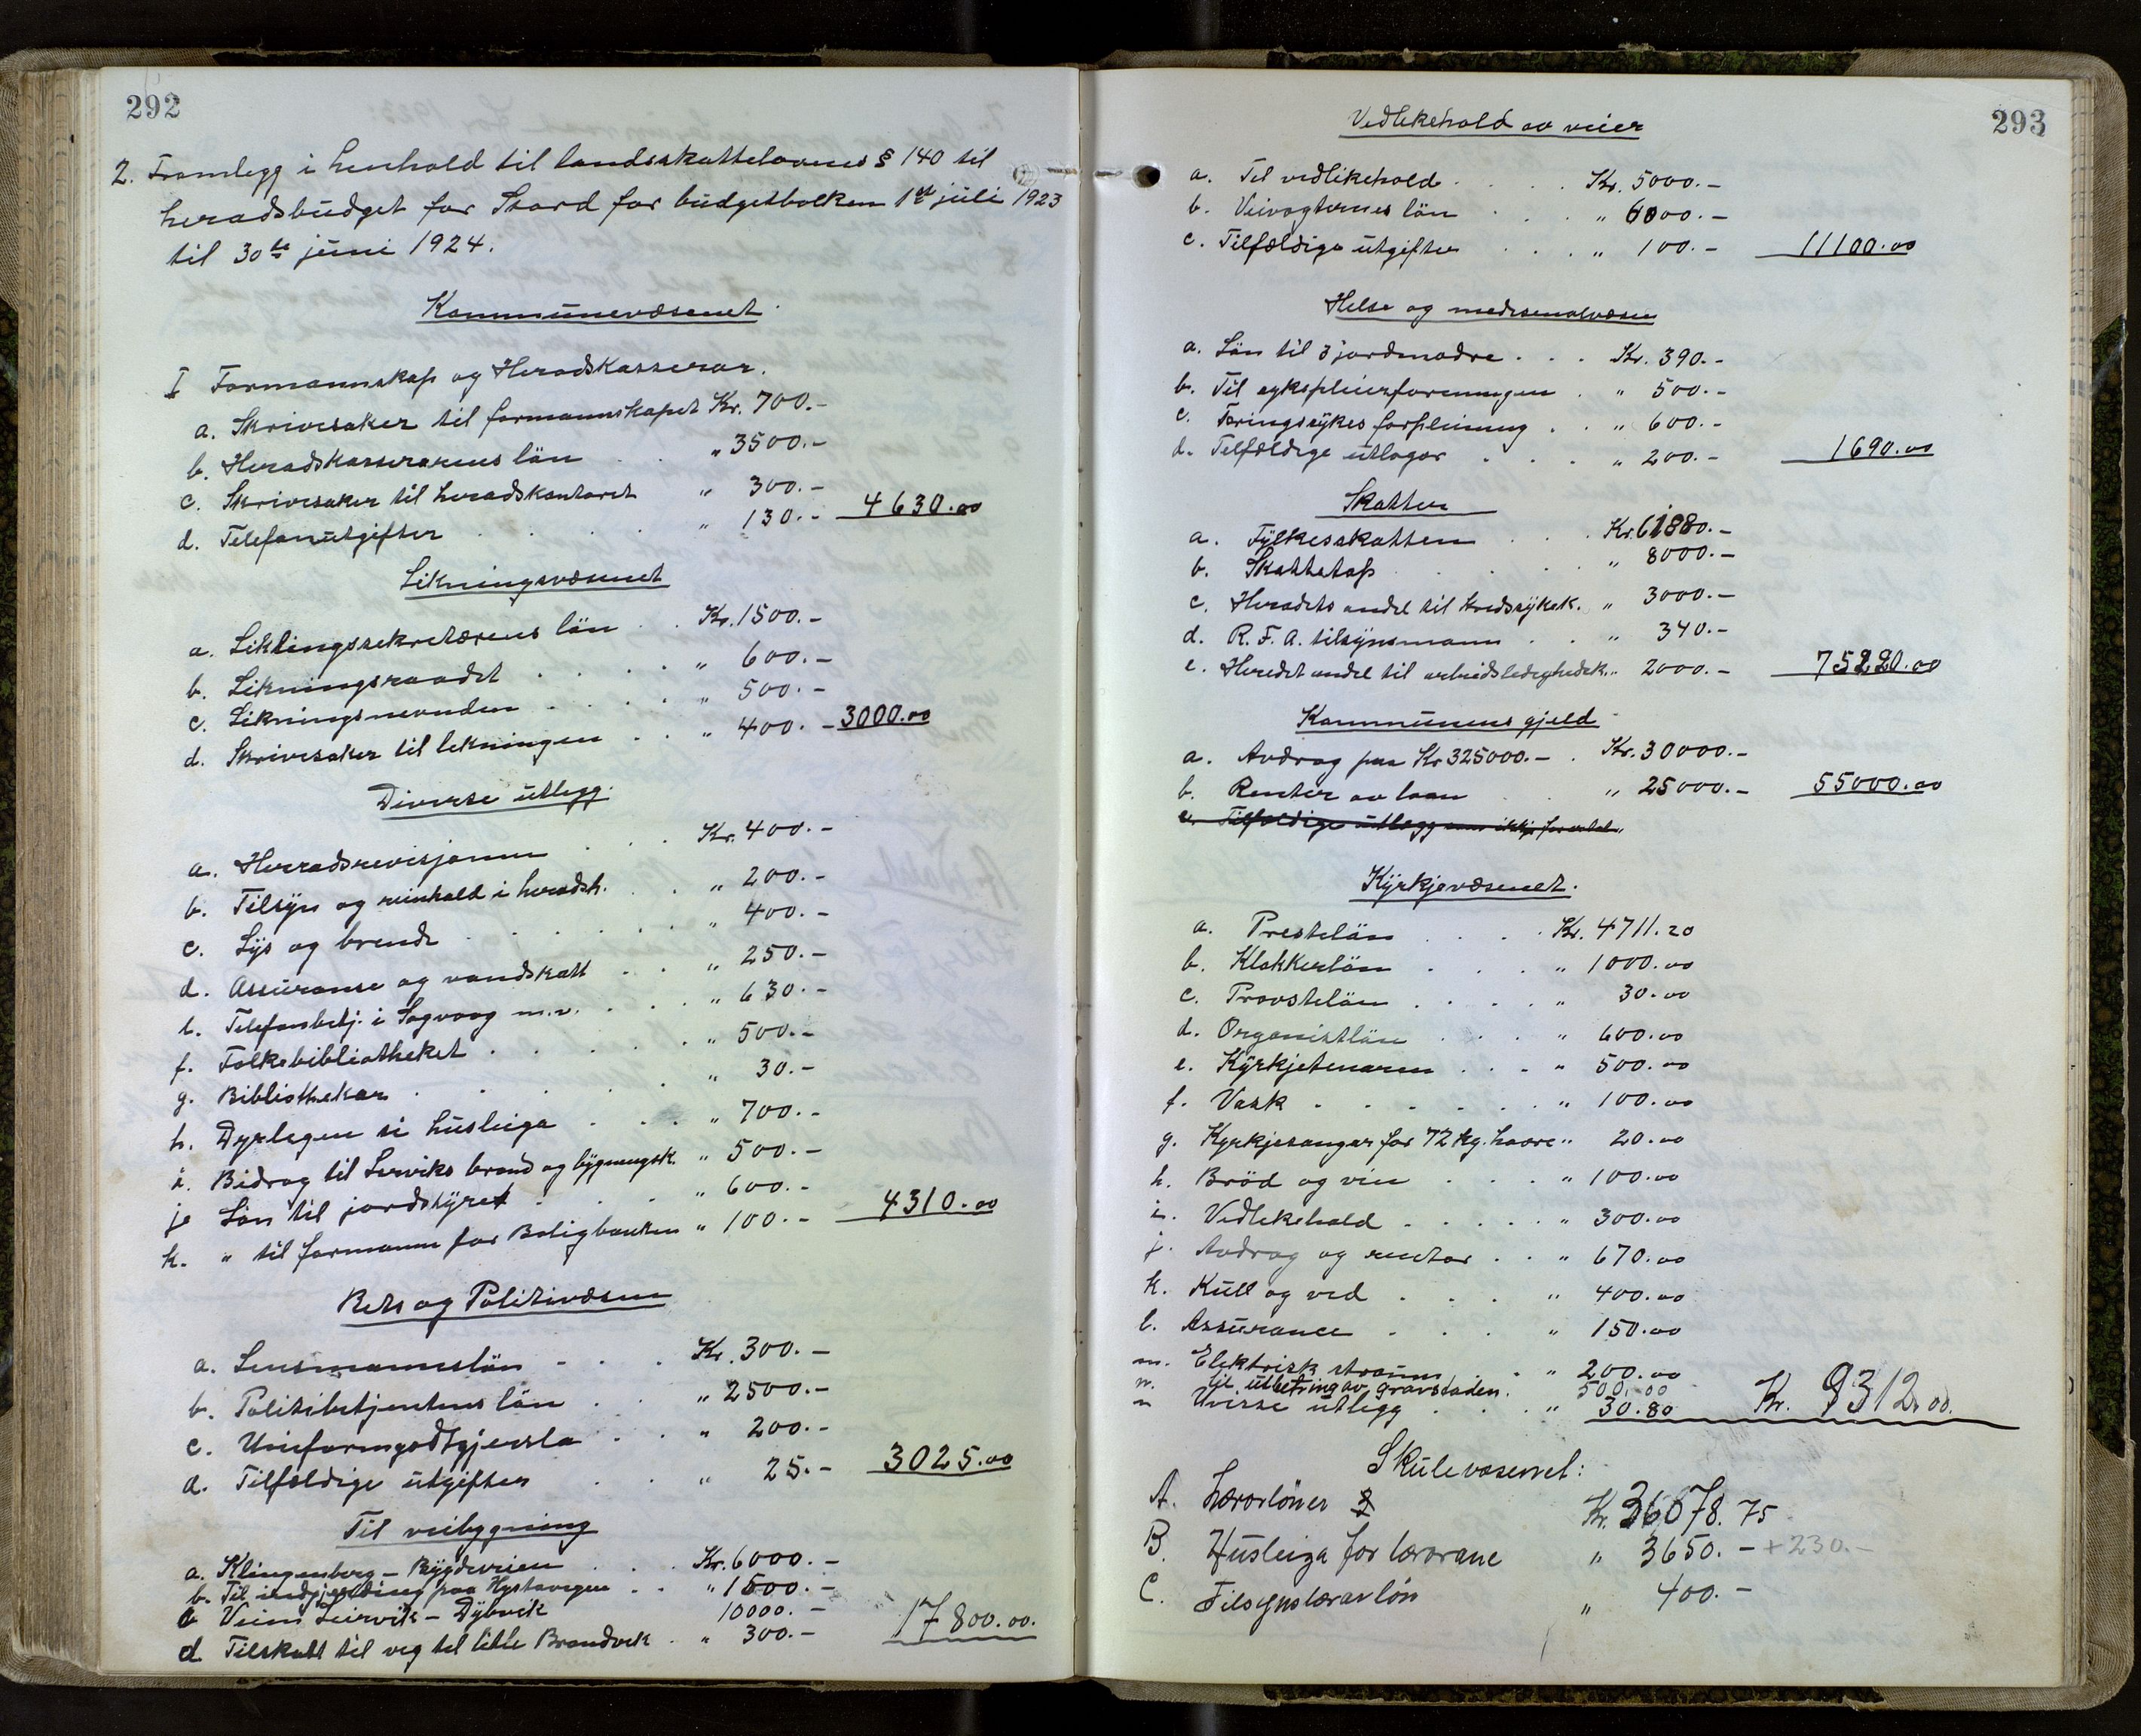 292
2. Framlegg i henhold til landsskattelovenes § 140 til
heradsbudget for Stord for budgetbolken 1ste juli 1923
til 30te juni 1924.
Kommunevæsenet.
I Formannskap og Heradskasserar.
a. Skrivesaker til formannskapet Kr. 700.-
b. Heradskasserarens lön . . " 3500.-
c. Skrivesaker til heradskontoret " 300.-
d. Telefonutgifter . . . . " 130.- 4630.00
Likningsvæsenet
a. Liktingssekretærens lön . . Kr. 1500.-
b. Likningsraadet . . . . " 600.-
c. Likningsnevnden . . . . " 500.-
d. Skrivesaker til lekningen . . " 400.- 3000.00
Diverse utlegg.
a. Herradsrevisjonen . . . Kr. 400.-
b. Tilsyn og reinhald i heradsh. . . " 200.-
c. Lys og brende . . . . . " 400.-
d. Assuranse og vandskatt . . " 250.-
e. Telefonbetj. i Sagvaag m.v. . . . " 630.-
f. Folkebibliotheket . . . . . " 500.-
g. Bibliothekar . . . . . " 30.-
h. Dyrlegen si husleiga . . . " 700.-
i. Bidrag til Lerviks brand og bygningsk. " 500.-
j. Lön til jordstyret . . . . " 600.-
k. " til formann for Boligbanken " 100.- 4310.00
Rets og Politivæsen
a. Lensmannslön - . . Kr. 300.-
b. Politibetjentens lön . . " 2500.-
c. Uniformgodtgjersla . . " 200.-
d. Tilfældige utgifter . . " 25.- 3025.00
Til veibygning
a. Klingenberg - Bygdeveien . . . Kr. 6000.-
b. Til indgjerding paa Hystavegen . . " 1500.-
c Veien Leirvik - Dybvik 10000.-
d Tilskott til veg til litle Brandvik . " 300.- 17800.00.
293
Vedlekehold av veier
a. Til vedlikehold . . . . Kr. 5000.-
b. Veivogternes lön . . . " 6000.-
c. Tilfældige utgifter . . . " 100.- 11100.00
Helse og medisenalvæsen
a. Lön til 3 jordmødre . . . Kr. 390.-
b. Til sykepleierforeningen . " 500.-
c. Tæringssykes forpleining . . " 600.-
d. Tilfældige utlagor . . . " 200.- 1690.00
Skatter
a. Fylkesskatten . . . Kr. 61880.-
b. Skattetap . . . . " 8000.-
c. Heradets andel til kredssykek. " 3000.-
d. R. F. A. tilsynsmann . . " 340.-
e. Heredet andel til arbeidsledighedsk. " 2000.- 75220.00
Kommunens gjeld
a. Avdrag paa Kr 325000.- . Kr. 30000.-
b. Renter av laan . . " 25000.- 55000.00
c. Tilfældige utlegg som ikkje
Kyrkjevæsenet.
a. Prestelön . . . Kr. 4711.20
b. Klokkerlön . . . " 1000.00
c. Provstelön . . . . " 30.00
d. Organistlön . . . " 600.00
e. Kyrkjetenaren . . . " 500.00
f. Vask . . . . . . " 100.00
g. Kyrkjesanger for 72 kg. havre " 20.00
h. Bröd og vin . . . " 100.00
i. Vedlekehald . . . . . " 300.00
j. Avdrag og rentor . . " 670.00
k. Kull og ved . . . " 400.00
l. Assurance . . . " 150.00
m. Elektrisk straum . " 200.00
n. til utbetring av gravstaden. 500.00
n Uvisse utlegg . . . " 30.80 Kr. 9312.00.
Skulevæsenet:
A. Lærarlöner Kr. 36078.75
B. Husleiga for lærarane " 3650.- +230.-
C. Tilsynslærarlön " 400.-